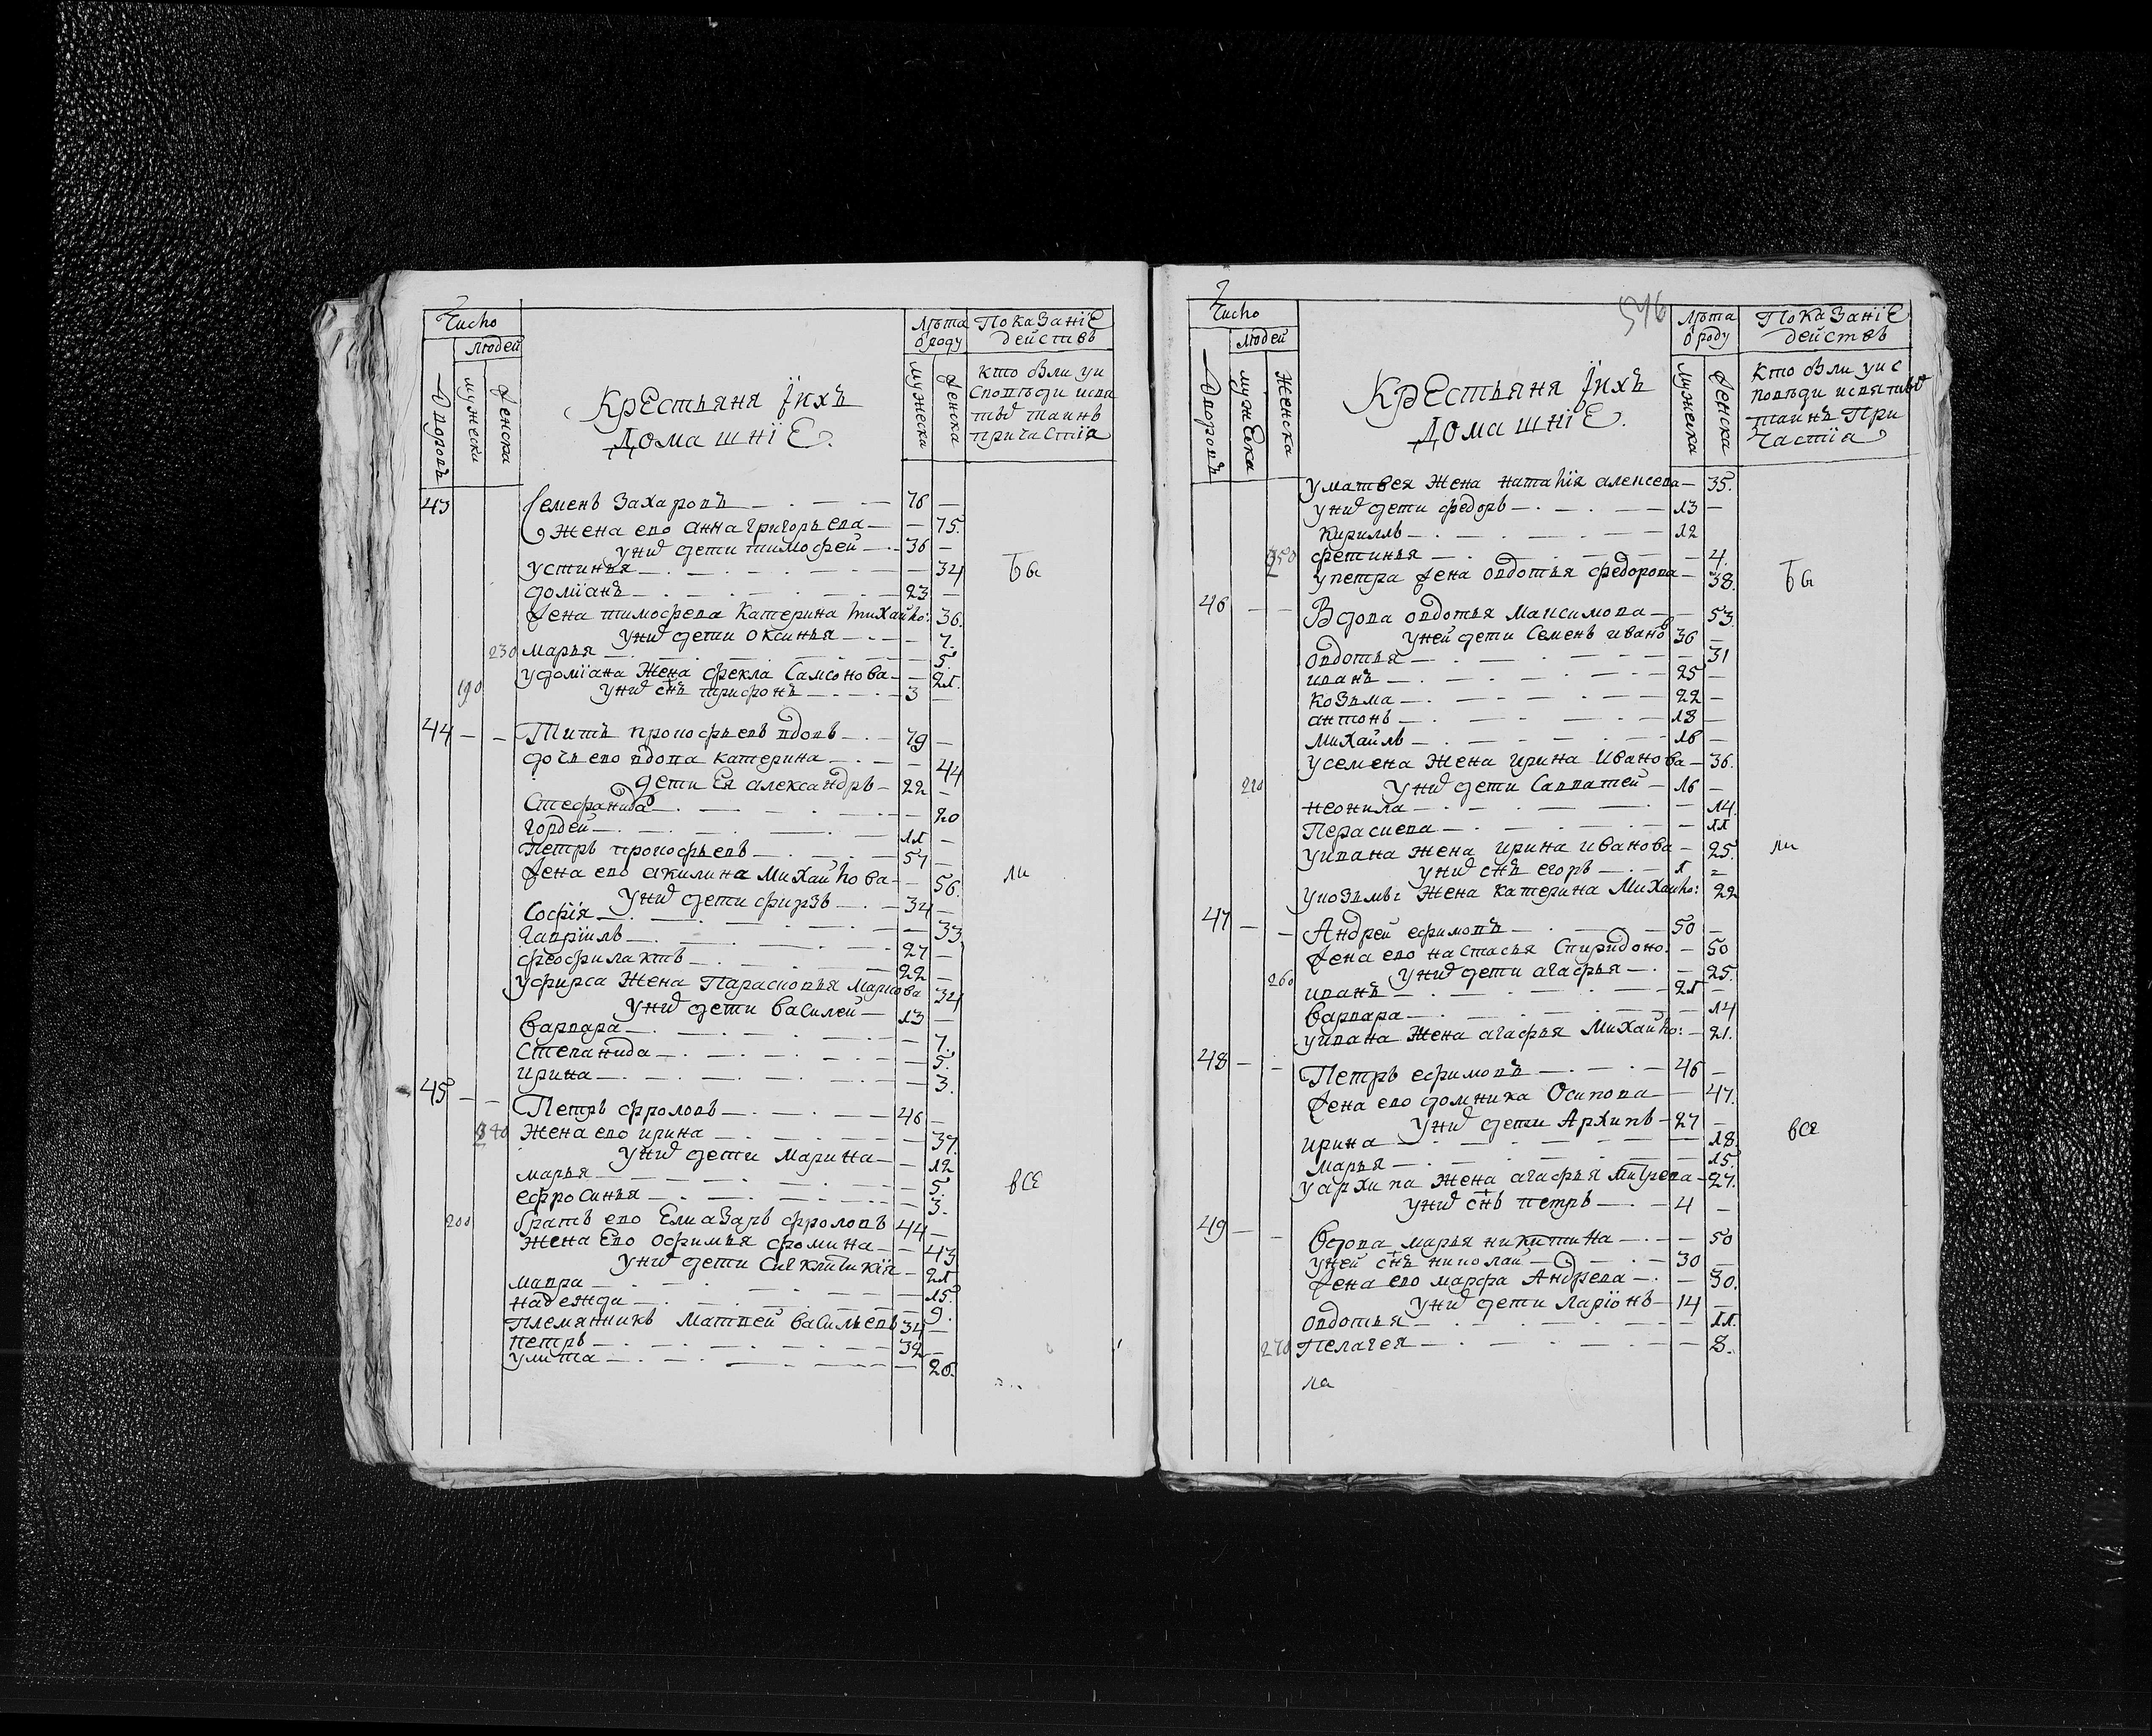 Число
людей
дворовъ
мужески
женска
Крестьяня їихъ
домашнїе.
Лѣта
ѿ роду
мужеска
женска
Показанїе
действъ
кто были уи
сповѣди исвя
тыѯ таинъ
причастїя
43 Семенъ Захаровъ 76
Жена ево анна григорьева 75.
униѯ дети тимофей 36
устинья 34
домїанъ 23
жена тимофева катерина михайло: 36.
униѯ дети оксинья 7.
230 марья 5.
удомїана жена фекла Самсонова 21.
190 униѯ снъ трифонъ 3
44 Титъ прокофьевъ вдовъ 79
дочь ево вдова катерина 44
дети Ея александръ 22
Стефанида 20
гордей 11
петръ прокофьевъ 57
жена ево акилина михайлова 56.
униѯ дети фирзъ 34
Софїя 33
гаврїилъ 27
феофилактъ 22
уфирса жена Парасковья маркова 34
униѯ дети василей 13
варвара 7.
степанида 5.
ирина 3.
45 Петръ фроловъ 46
240 жена ево ирина 37.
униѯ дети марина 12
марья 5
ефросинья 3.
200 братъ ево Елиазаръ фроловъ 44
жена Ево офимья фомина 43
униѯ дети 21
мавра 15.
надежда 9.
племянникъ матвей васильевъ 34
петръ 32
улита 26.
бы
ли
все
Число
людей
дворовъ
мужеска
женска
Крестьяня їихъ
домашнїе.
546
Лѣта
ѿ роду
мужеска
женска
Показанїе
действъ
кто были уис
повѣди исвятыѯ
таинъ при
частїя
уматвея жена наталїя алексева 35.
униѯ дети федоръ 13
кириллъ 12
250 фетинья 4.
упетра жена овдотья федорова 38.
46 Вдова овдотья максимова 53.
уней дети семенъ ивановъ 36
овдотья 31
иванъ 25
козьма 22
антонъ 18
михайлъ 16
усемена жена ирина иванова 36.
210 униѯ дети савватей 16
неонила 14.
Пераскева 11
уивана жена ирина иванова 25.
униѯ снъ егоръ 1
укозьмы жена катерина михайло: 22
47 Андрей ефимовъ 50
жена ево настасья спиридоно. 50
260 униѯ дети агафья 25.
иванъ 21
варвара 14
уивана жена агафья михайло: 21.
48 Петръ ефимовъ 46
жена ево домника осипова 47.
униѯ дети архипъ 27
ирина 18.
марья 15.
уархипа жена агафья 27.
униѯ снъ петръ 4
49 вдова марья никитина 50
уней снъ николай 30
жена ево марфа андрева 30.
униѯ дети ларїонъ 14
овдотья 11.
270 пелагея 8.
бы
ли
все